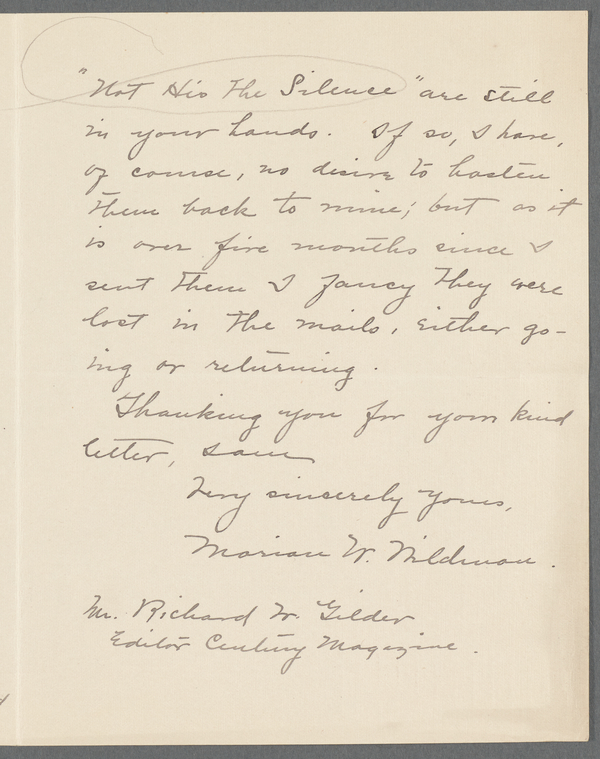 "Not His The Silence" are still
in your hands. If so, I have,
of course, no desire to hasten
them back to mine; but as it
is over five months since I
sent them I fancy they were
lost in the mails, either go-
ing or returning.
Thanking you for your kind
letter, I am
Very sincerely yours,
Marian W. Wildman.
Mr. Richard W. Gilder
Editor Century Magazine.